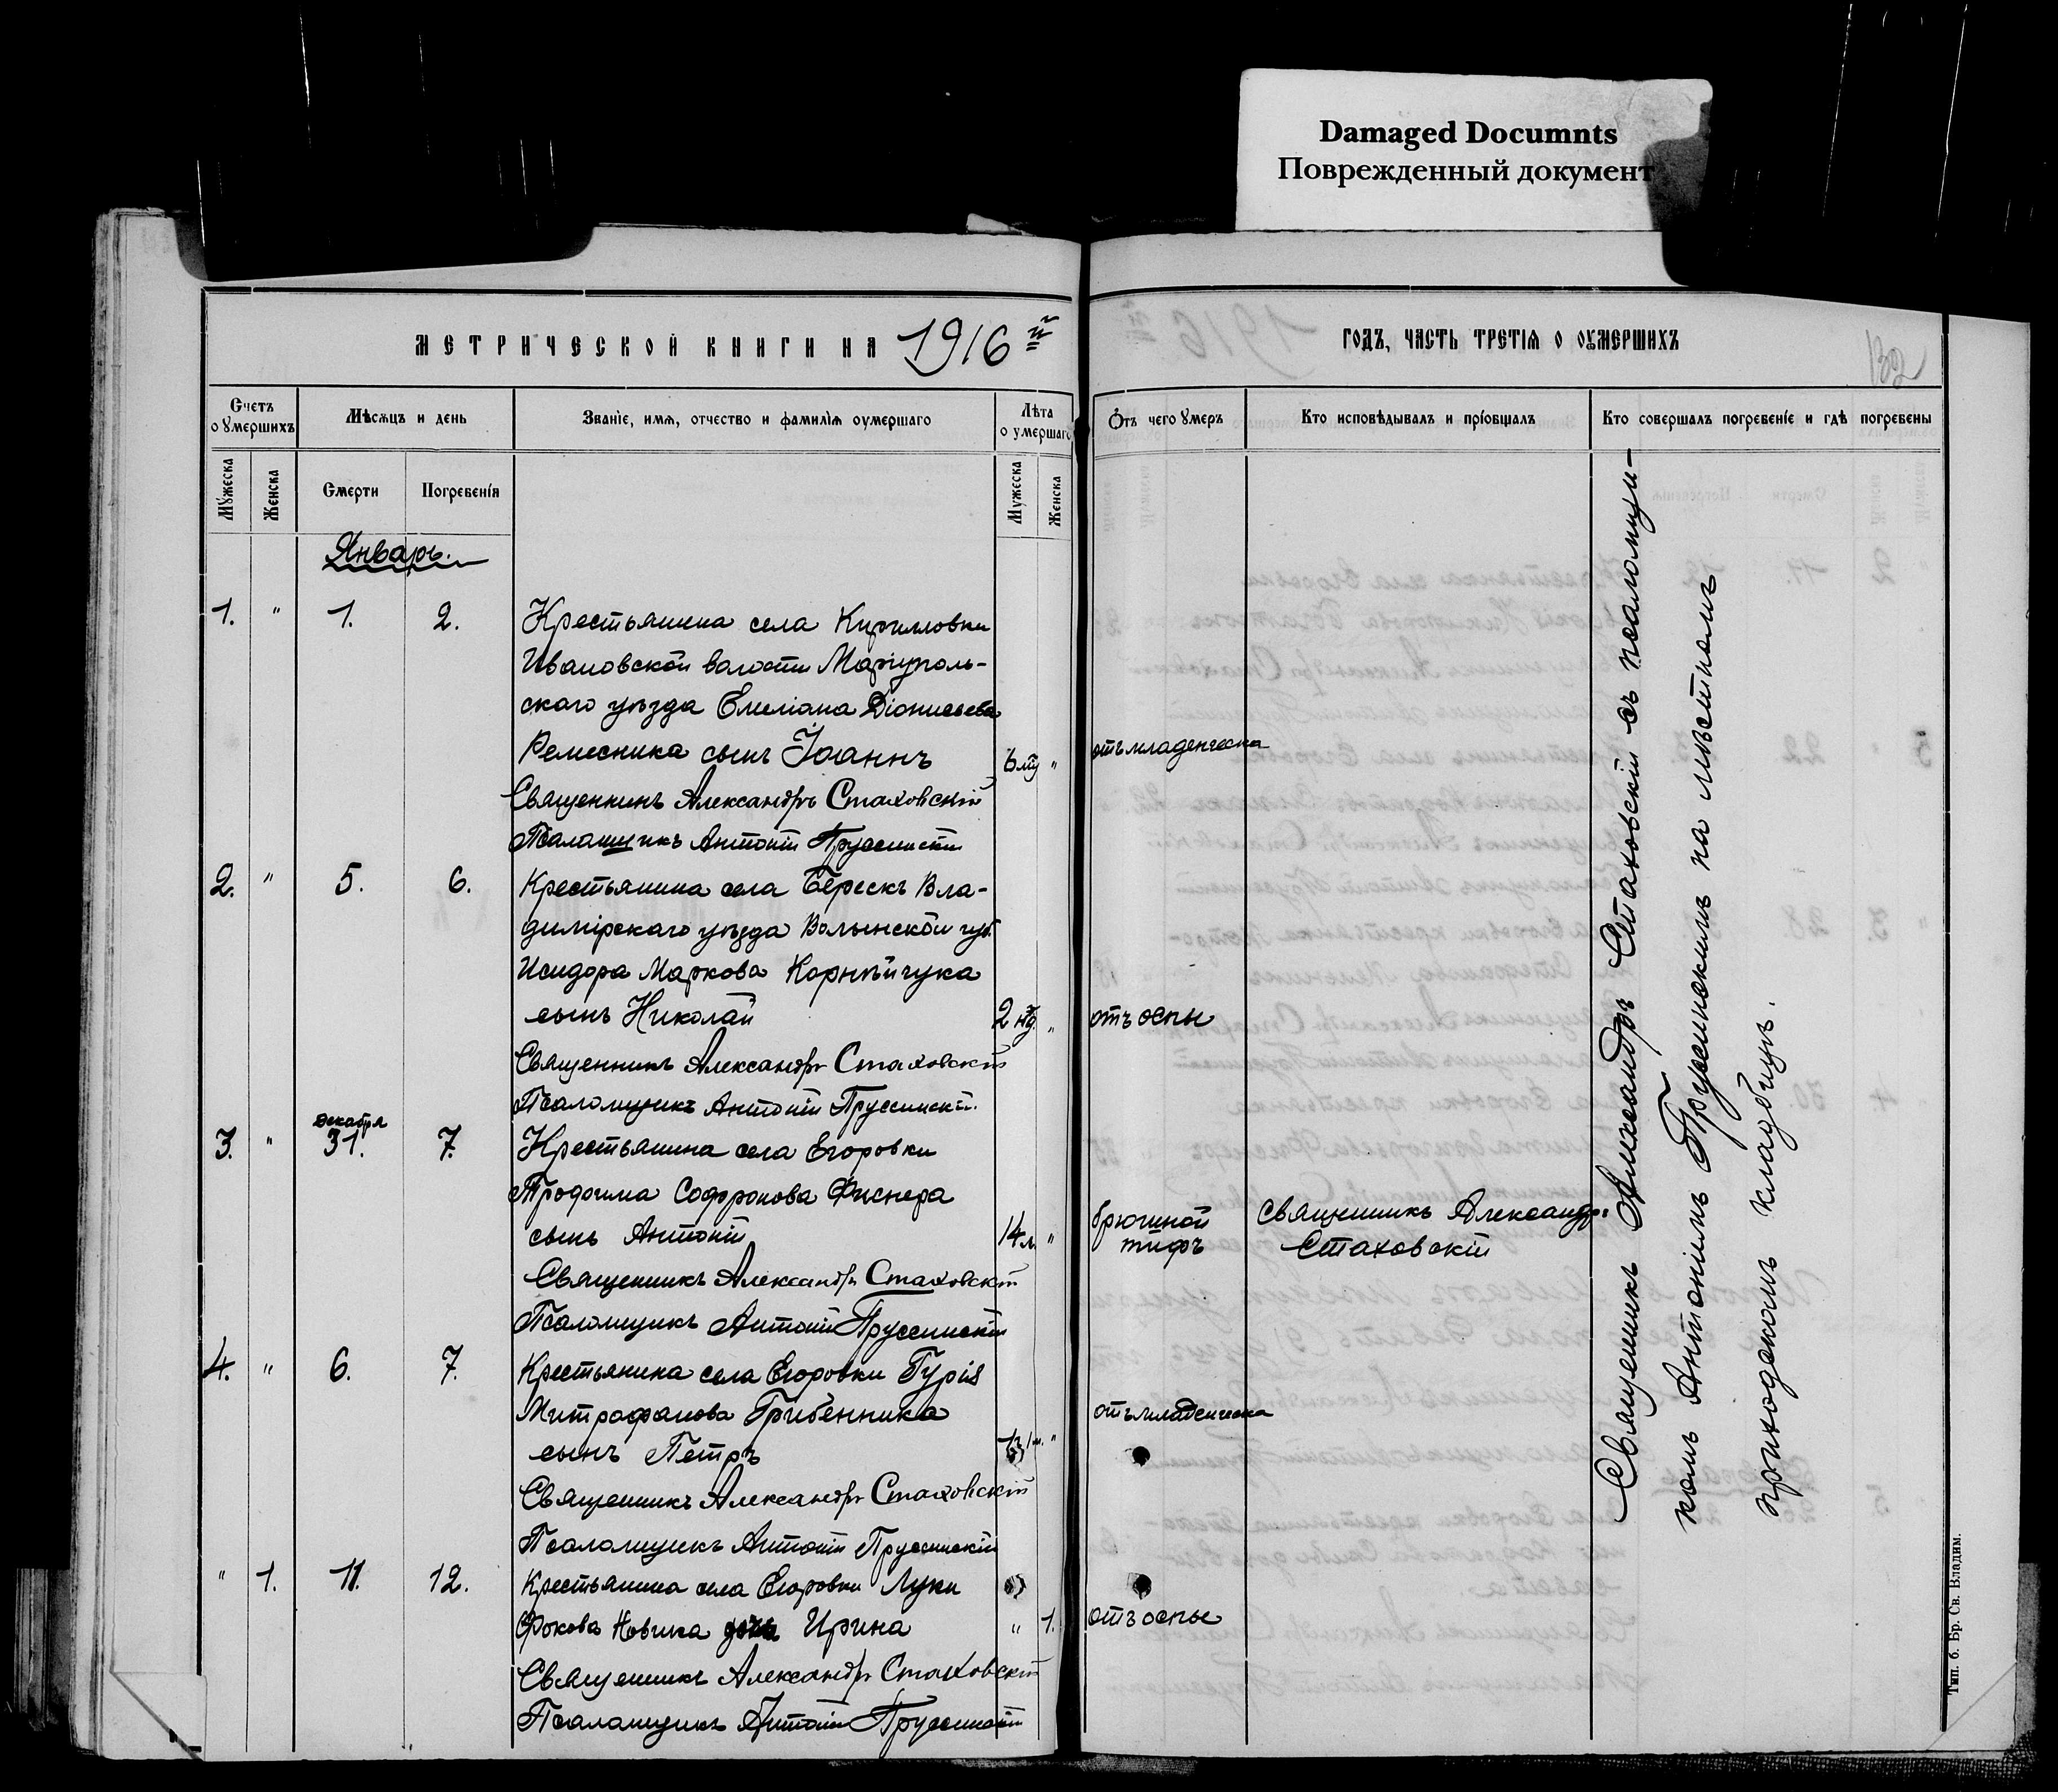 Damaged Documnts
Поврежденный документ
МЕТРИЧЕСКОЙ КНИГИ НА 1916й
Счетъ оумершихъ
Мѣсяцъ и день
Званіе, имя, отчество и фамилія оумершаго
Лѣта оумершаго
Мужеска
Женска
Смерти
Погребенія
Мужеска
Женска
Январь.
1. " 1. 2. Крестьянина села Кирилловки
Ивановской волости Маріуполь-
скаго уѣзда Емеліана Діонисьева
Ремесника сынъ Іоаннъ "
Священникъ Александръ Стаховскій
Псаломщикъ Антоній Пруссинскій
2. " 5. 6. Крестьянина села Берескъ Вла-
димірскаго уѣзда Волынской губ.
Исидора Маркова Корнѣйчука
сынъ Николай 2 нд "
Священникъ Александръ Стаховскій
Псаломщикъ Антоній Пруссинскій.
декабря
3. " 31. 7. Крестьянина села Егоровки
Трофима Софронова Фиснера
сынъ Антоній 14 л. "
Священникъ Александръ Стаховскій
Псаломщикъ Антоній Пруссинскій
4. " 6. 7. Крестьянина села Егоровки Гурія
Митрофанова Грибенника
сынъ Петръ "
Священникъ Александръ Стаховскій
Псаломщикъ Антоній Пруссинскій
" 1. 11. 12. Крестьянина села Егоровки Луки
Фокова Новика дочь Ирина " 1.
Священникъ Александръ Стаховскій
Псаломщикъ Антоній Пруссинскій
ГОДЪ, ЧАСТЬ ТРЕТІЯ О ОУМЕРШИХЪ
132
Отъ чего умеръ
Кто исповѣдывалъ и пріобщалъ
Кто совершалъ погребеніе и гдѣ погребены
отъ младенческа
отъ оспы
брюшной
тифъ
Священникъ Александръ
Стаховскій
отъ младенческа
отъ оспы
Священникъ Александръ Стаховскій съ псаломщи-
комъ Антоніемъ Пруссинскимъ на мѣстномъ
приходскомъ кладбищѣ.
Тип. б. Бр. Св. Владим.